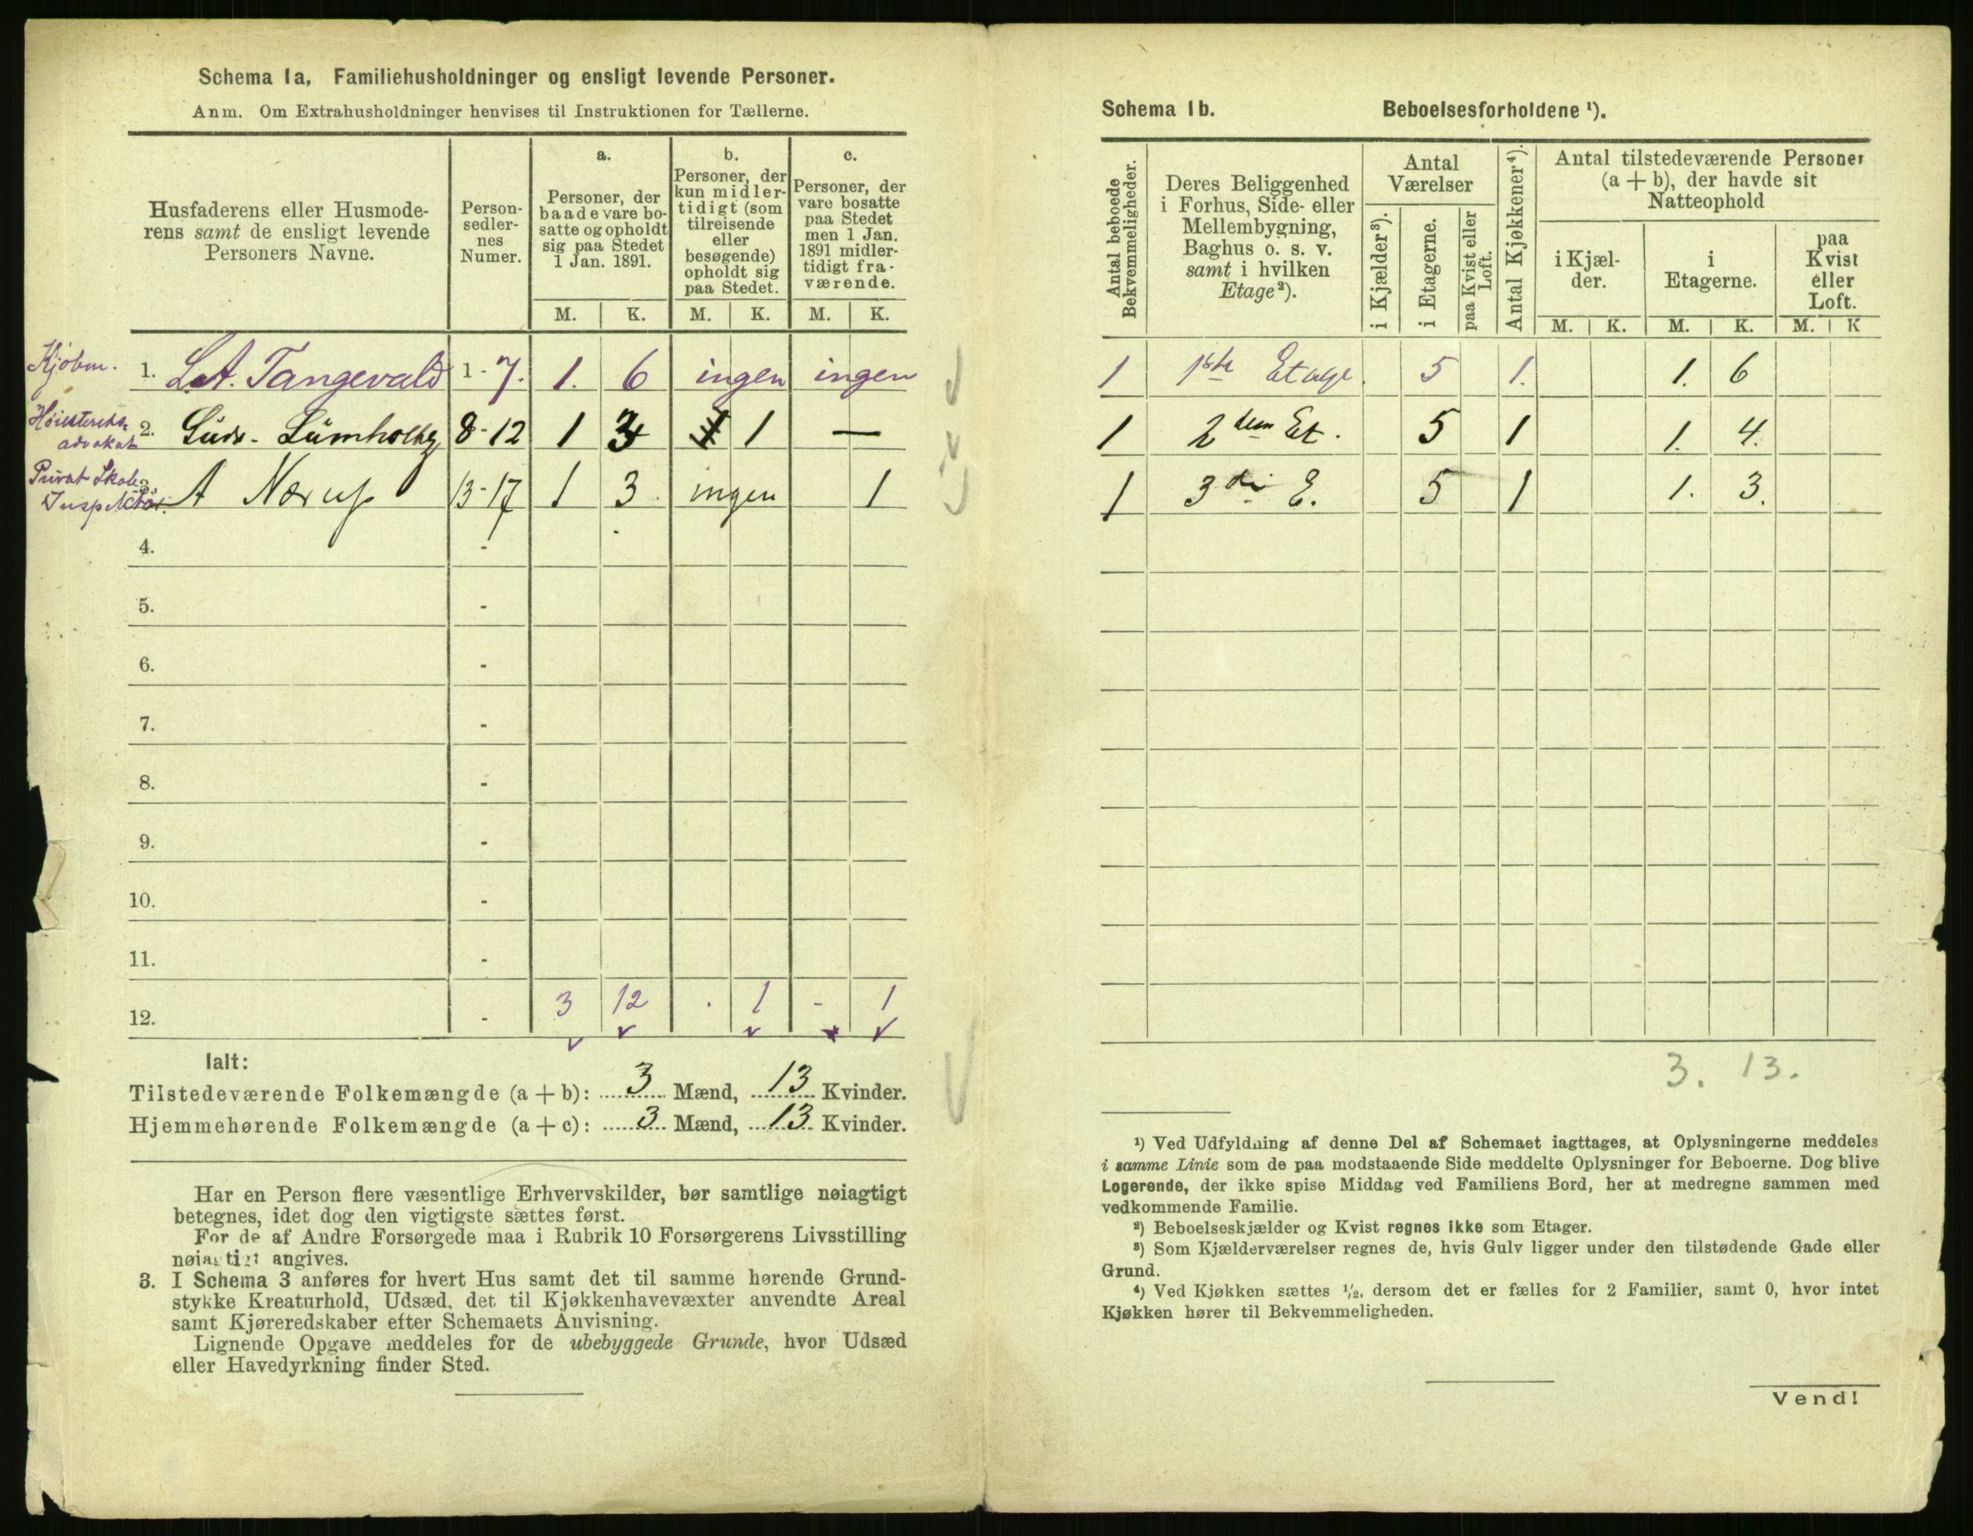 Schema 1a. Familiehusholdninger og ensligt levende Personer.
Anm. Om Extrahusholdninger henvises til Instruktionen for Tællerne.
Husfaderens eller Husmode-
rens samt de ensligt levende
Personers Navne.
Person-
sedler-
nes
Numer.
a.
Personer, der
baade vare bo-
satte og opholdt
sig paa Stedet
1 Jan. 1891.
b.
Personer, der
kun midler-
tidigt (som
tilreisende
eller
besøgende)
opholdt sig
paa Stedet.
c.
Personer, der
vare bosatte
paa Stedet
men 1 Jan.
1891 midler-
tidigt fra-
værende.
M. K. M. K. M. K.
Kjøbm. 1. L.A. Tangevald 1 - 7. 1. 6 ingen ingen
Høiesterets-
advokat 2. Lumholtz 8 - 12 1 3 1 —
Privat Skole
Inspektør 3. A Nærup 13 - 17 1 3. ingen 1
4. -
5. -
6. -
7. -
8. -
9. -
10. -
11. -
12. - 3 12 . 1 - 1
Ialt:
Tilstedeværende Folkemængde (a + b): 3 Mænd, 13 Kvinder.
Hjemmehørende Folkemængde (a + c): 3 Mænd, 13 Kvinder.
Har en Person flere væsentlige Erhvervskilder, bør samtlige nøiagtigt
betegnes, idet dog den vigtigste sættes først.
For de af Andre Forsørgede maa i Rubrik 10 Forsørgerens Livsstilling
nøiagtigt angives.
3. I Schema 3 anføres for hvert Hus samt det til samme hørende Grund-
stykke Kreaturhold, Udsæd, det til Kjøkkenhavevæxter anvendte Areal
samt Kjøreredskaber efter Schemaets Anvisning.
Lignende Opgave meddeles for de ubebyggede Grunde, hvor Udsæd
eller Havedyrkning finder Sted.
Schema 1b. Beboelsesforholdene ¹).
Antal beboede
Bekvemmeligheder.
Deres Beliggenhed
i Forhus, Side- eller
Mellembygning,
Baghus o. s. v.
samt i hvilken
Etage²).
Antal
Værelser
i Kjælder³).
i Etagerne.
paa Kvist eller
Loft.
Antal Kjøkkener⁴).
Antal tilstedeværende Personer
(a + b), der havde sit
Natteophold
i Kjæl-
der.
i
Etagerne.
paa
Kvist
eller
Loft.
M. K. M. K. M. K
1 1ste Etage. 5 1. 1. 6
1 2den Et. 5 1 1. 4.
1 3die E. 5 1 1. 3.
3. 13.
¹) Ved Udfyldning af denne Del af Schemaet iagttages, at Oplysningerne meddeles
i samme Linie som de paa modstaaende Side meddelte Oplysninger for Beboerne. Dog blive
Logerende, der ikke spise Middag ved Familiens Bord, her at medregne sammen med
vedkommende Familie.
²) Beboelseskjælder og Kvist regnes ikke som Etager.
³) Som Kjælderværelser regnes de, hvis Gulv ligger under den tilstødende Gade eller
Grund.
⁴) Ved Kjøkken sættes ½, dersom det er fælles for 2 Familier, samt 0, hvor intet
Kjøkken hører til Bekvemmeligheden.
Vend!